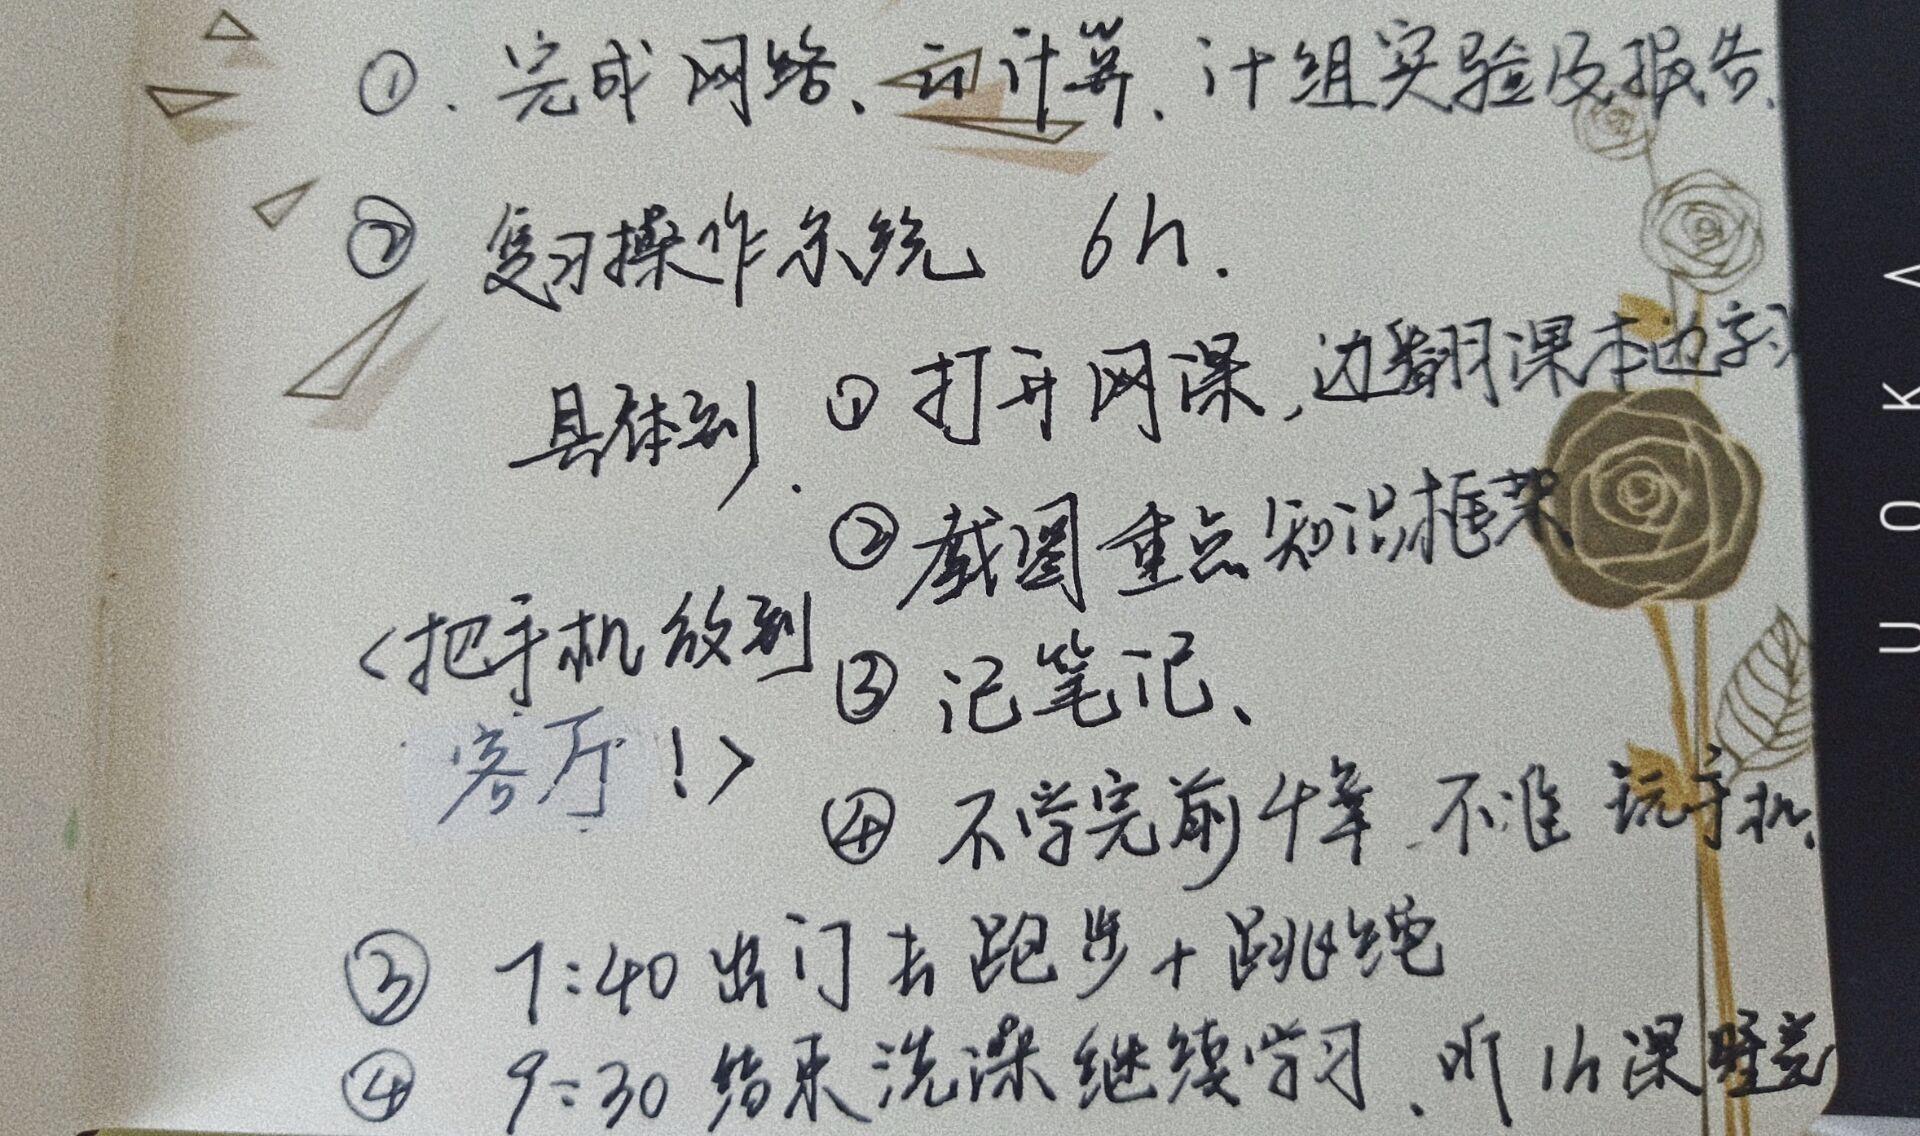 ①. 完成网络、计计算、计组实验及报告.
② 复习操作系统 6h.
具体到. ① 打开网课,边翻课本边学习
② 截图重点知识框架
<把手机放到
客厅!>
③ 记笔记、
④ 不学完前4章.不准玩手机.
③ 7:40出门去跑步+跳绳
④ 9:30结束洗澡继续学习.听1h课睡觉
UOKA